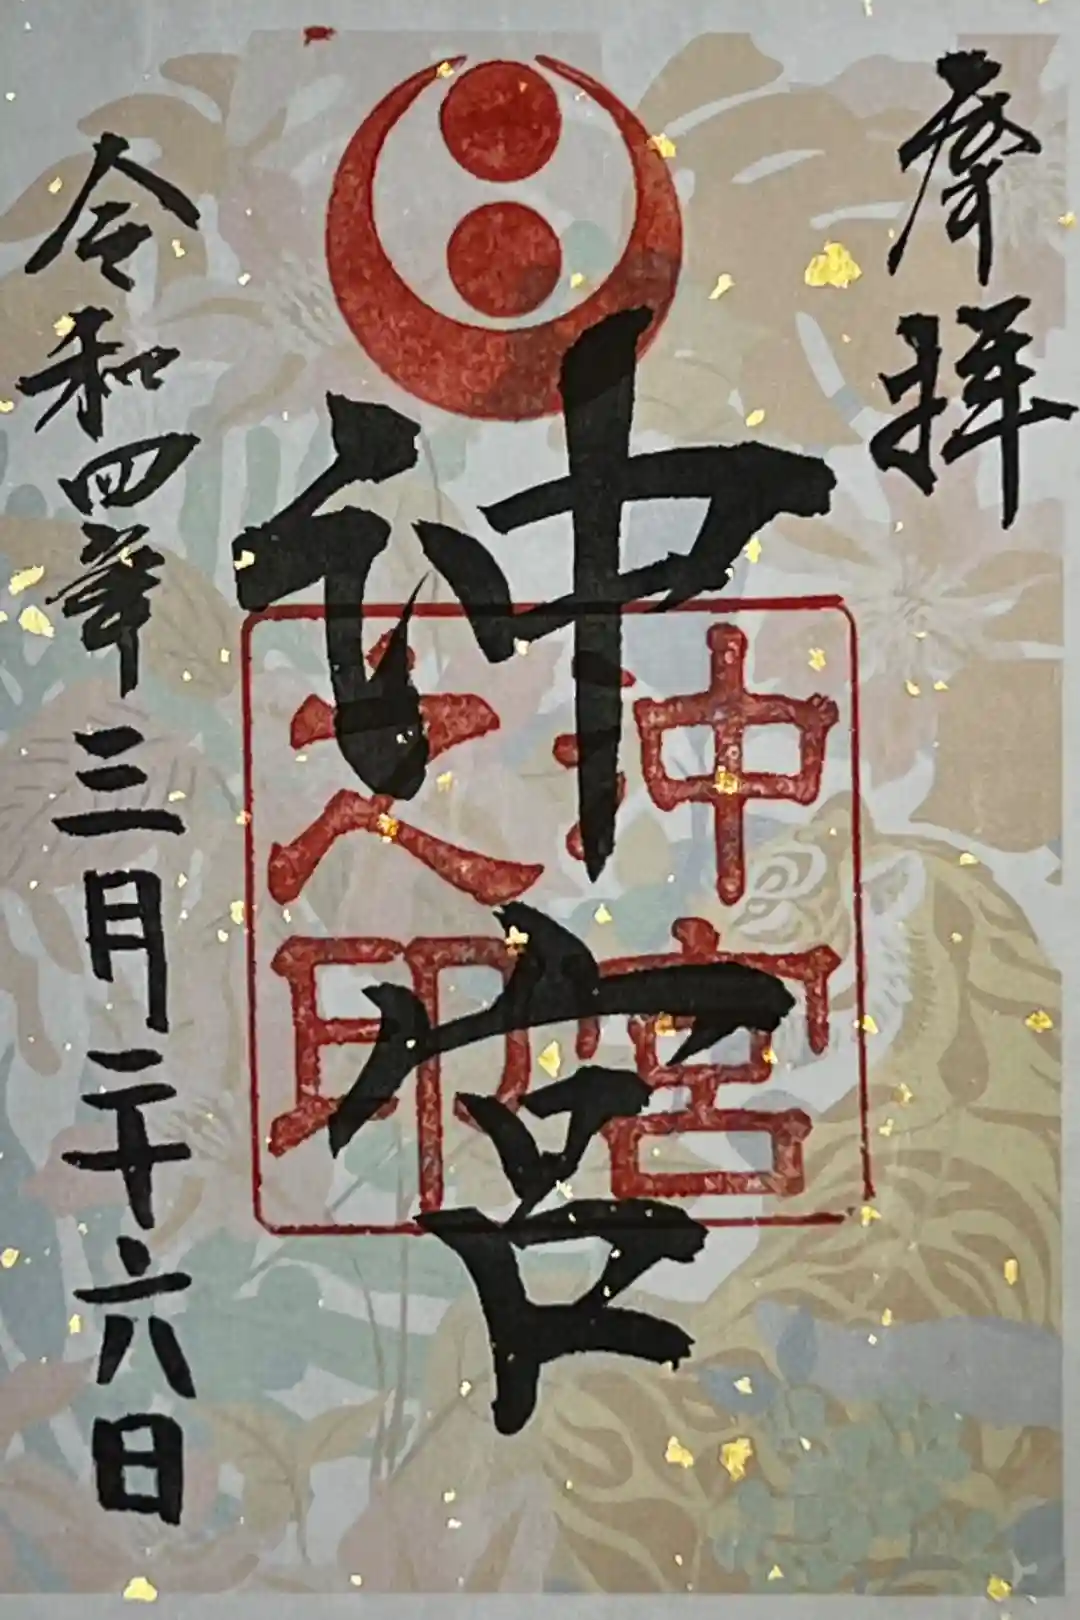 奉拝
沖宮
沖宮
之印
令和四年三月二十六日